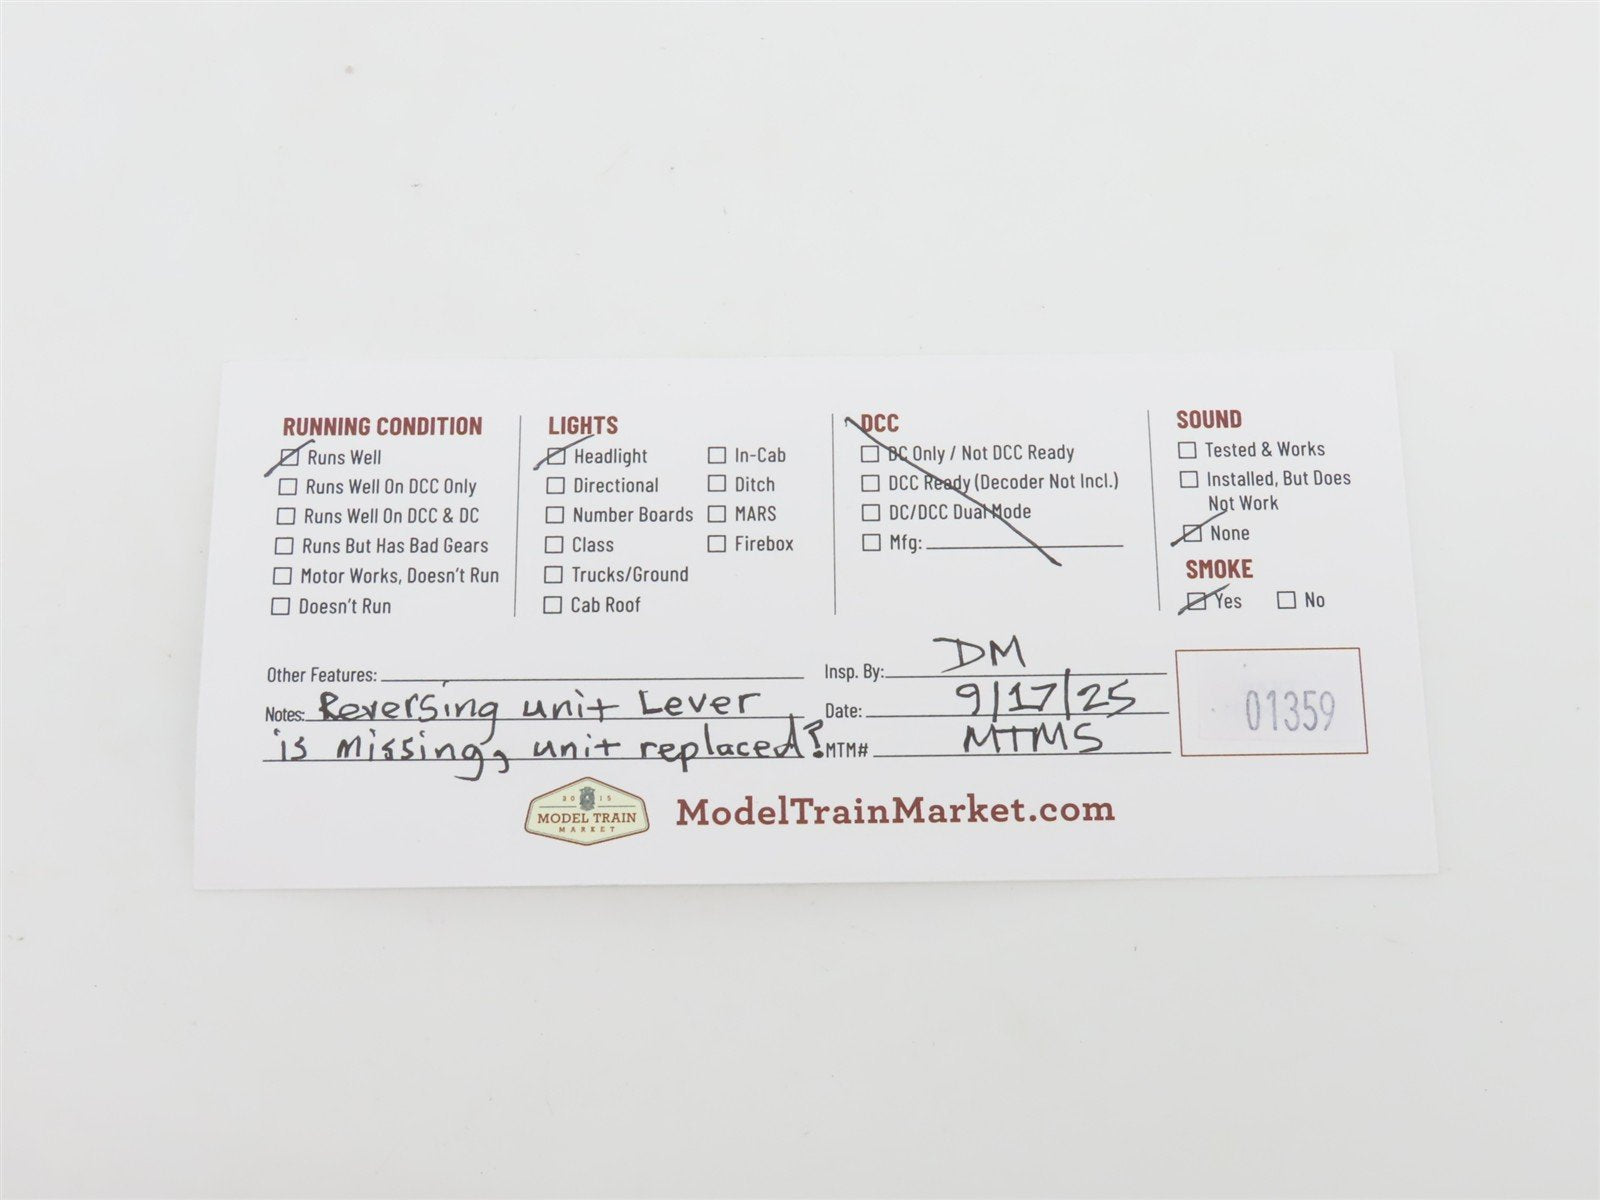 RUNNING CONDITION
Runs Well
Runs Well On DCC Only
Runs Well On DCC & DC
Runs But Has Bad Gears
Motor Works, Doesn't Run
Doesn't Run
LIGHTS
Headlight
Directional
Number Boards
Class
Trucks/Ground
Cab Roof
In-Cab
Ditch
MARS
Firebox
DCC
DC Only / Not DCC Ready
DCC Ready (Decoder Not Incl.)
DC/DCC Dual Mode
Mfg:
SOUND
Tested & Works
Installed, But Does
Not Work
None
SMOKE
Yes No
Other Features:
Notes: Reversing unit Lever
is missing, unit replaced?
Insp. By: DM
Date: 9/17/25
MTM# MTMS
01359
2015
MODEL TRAIN
MARKET
ModelTrainMarket.com